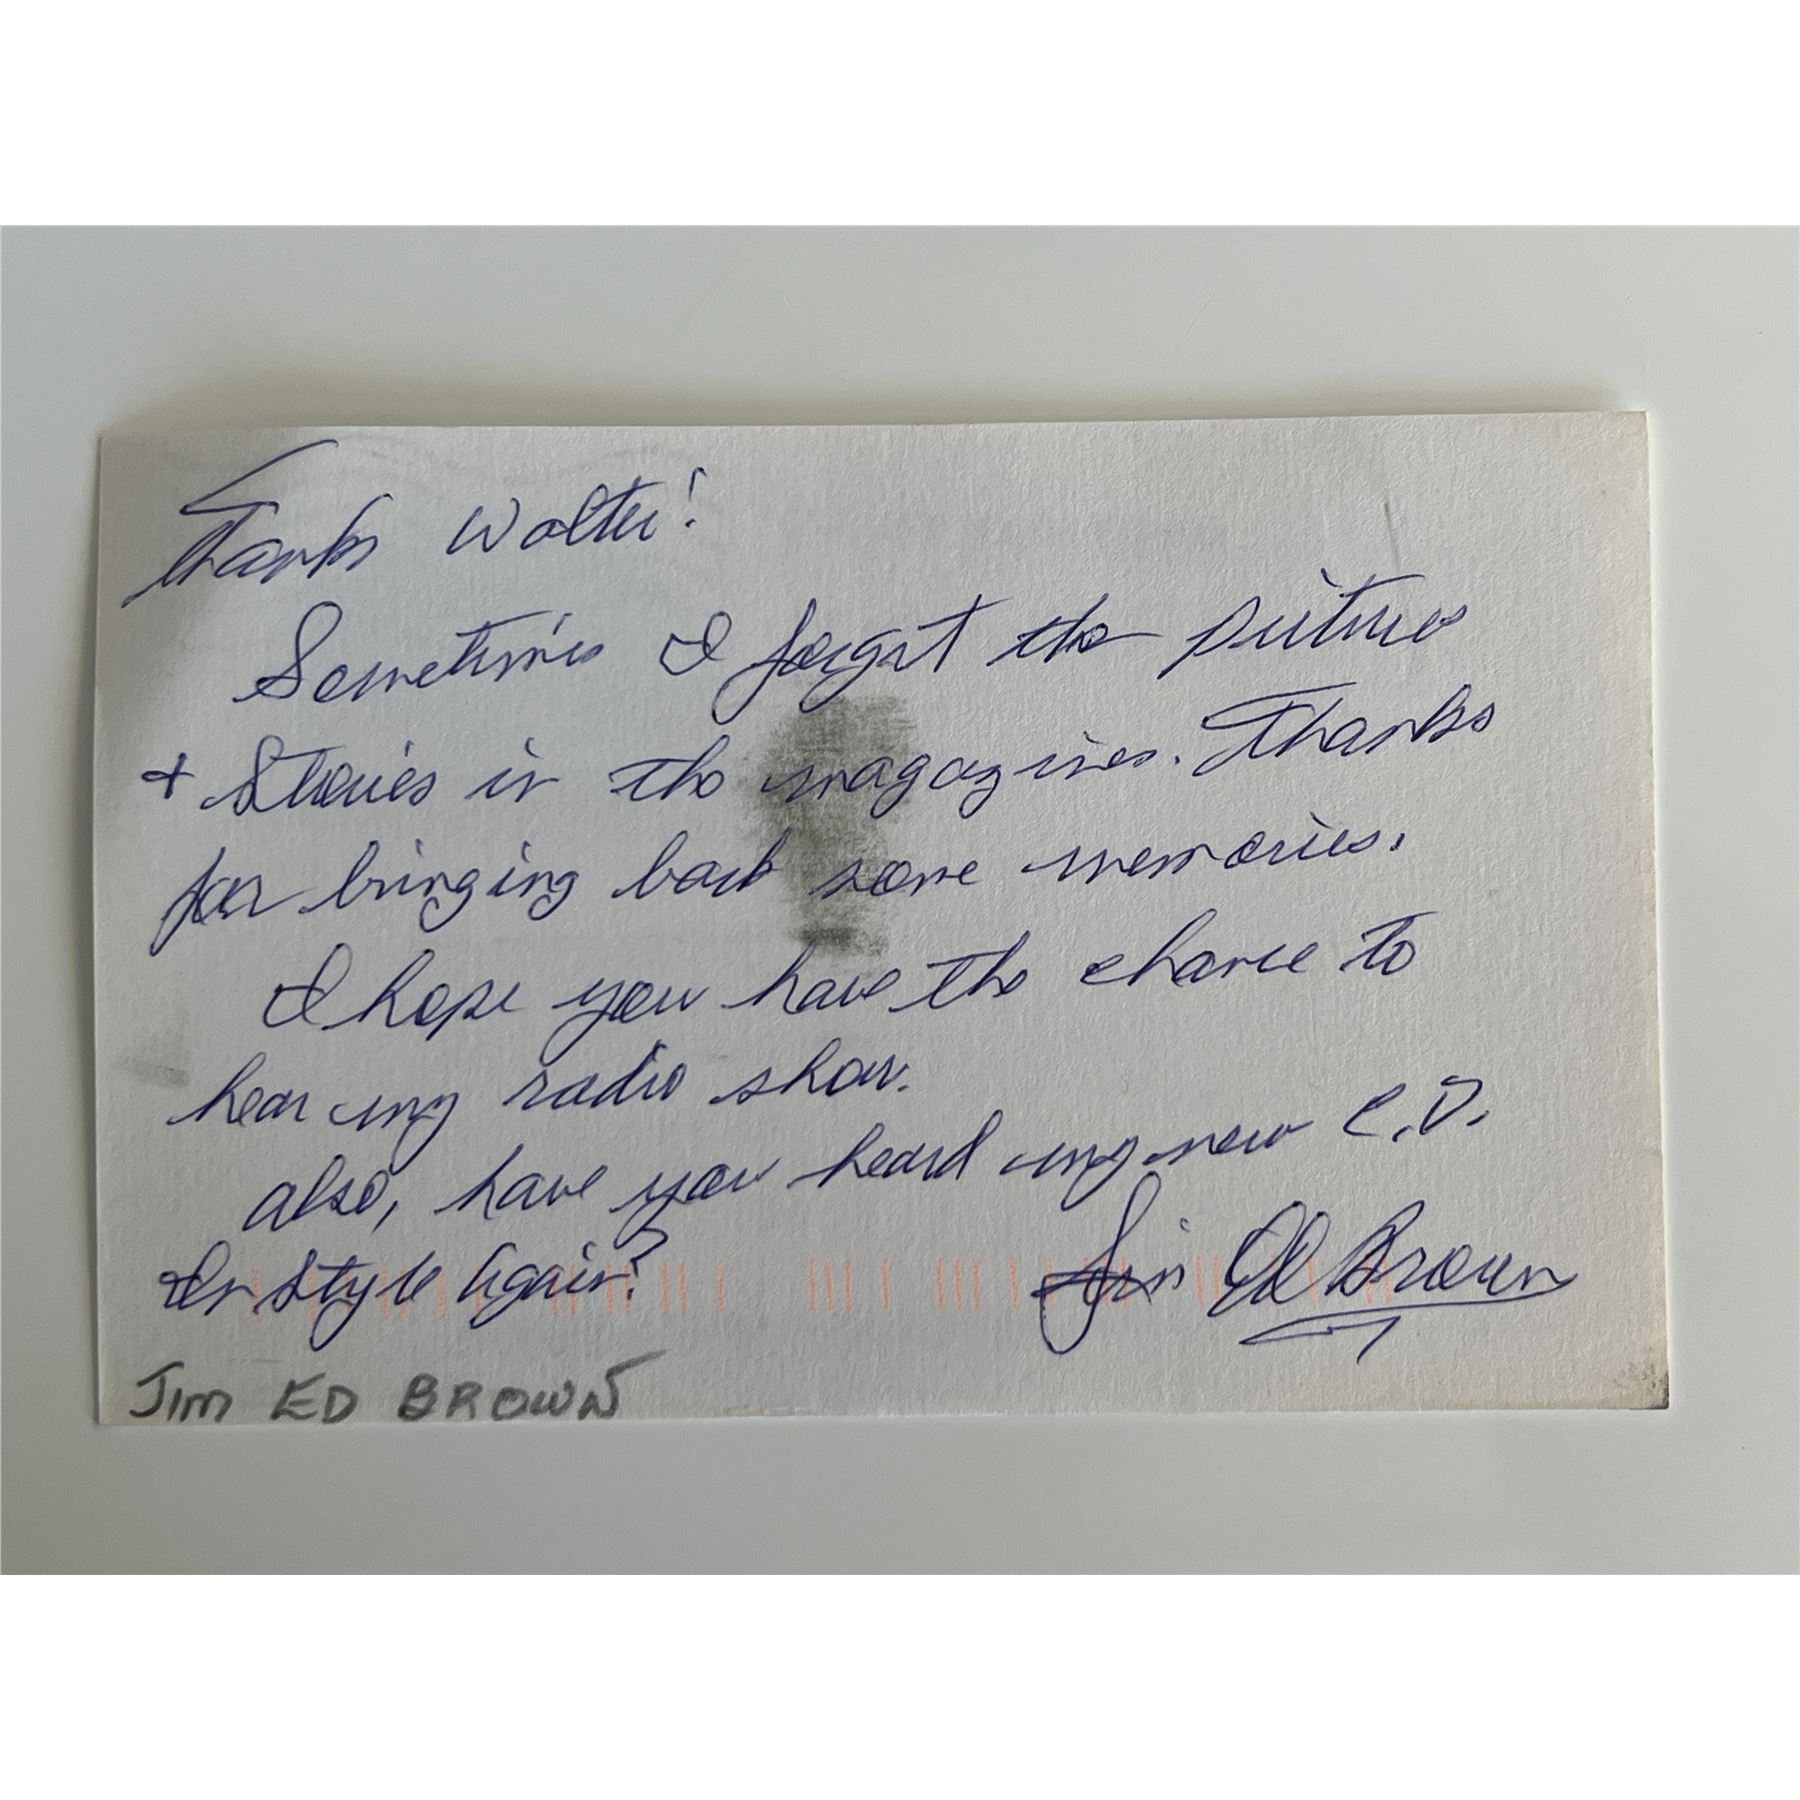 Thanks Walter!
Sometimes I forget the pictures
+ Stories in the magazines. Thanks
for bringing back some memories.
I hope you have the chance to
hear my radio show.
also, have you heard my new C.D.
In Style Again?
Jim Ed Brown
JIM ED BROWN